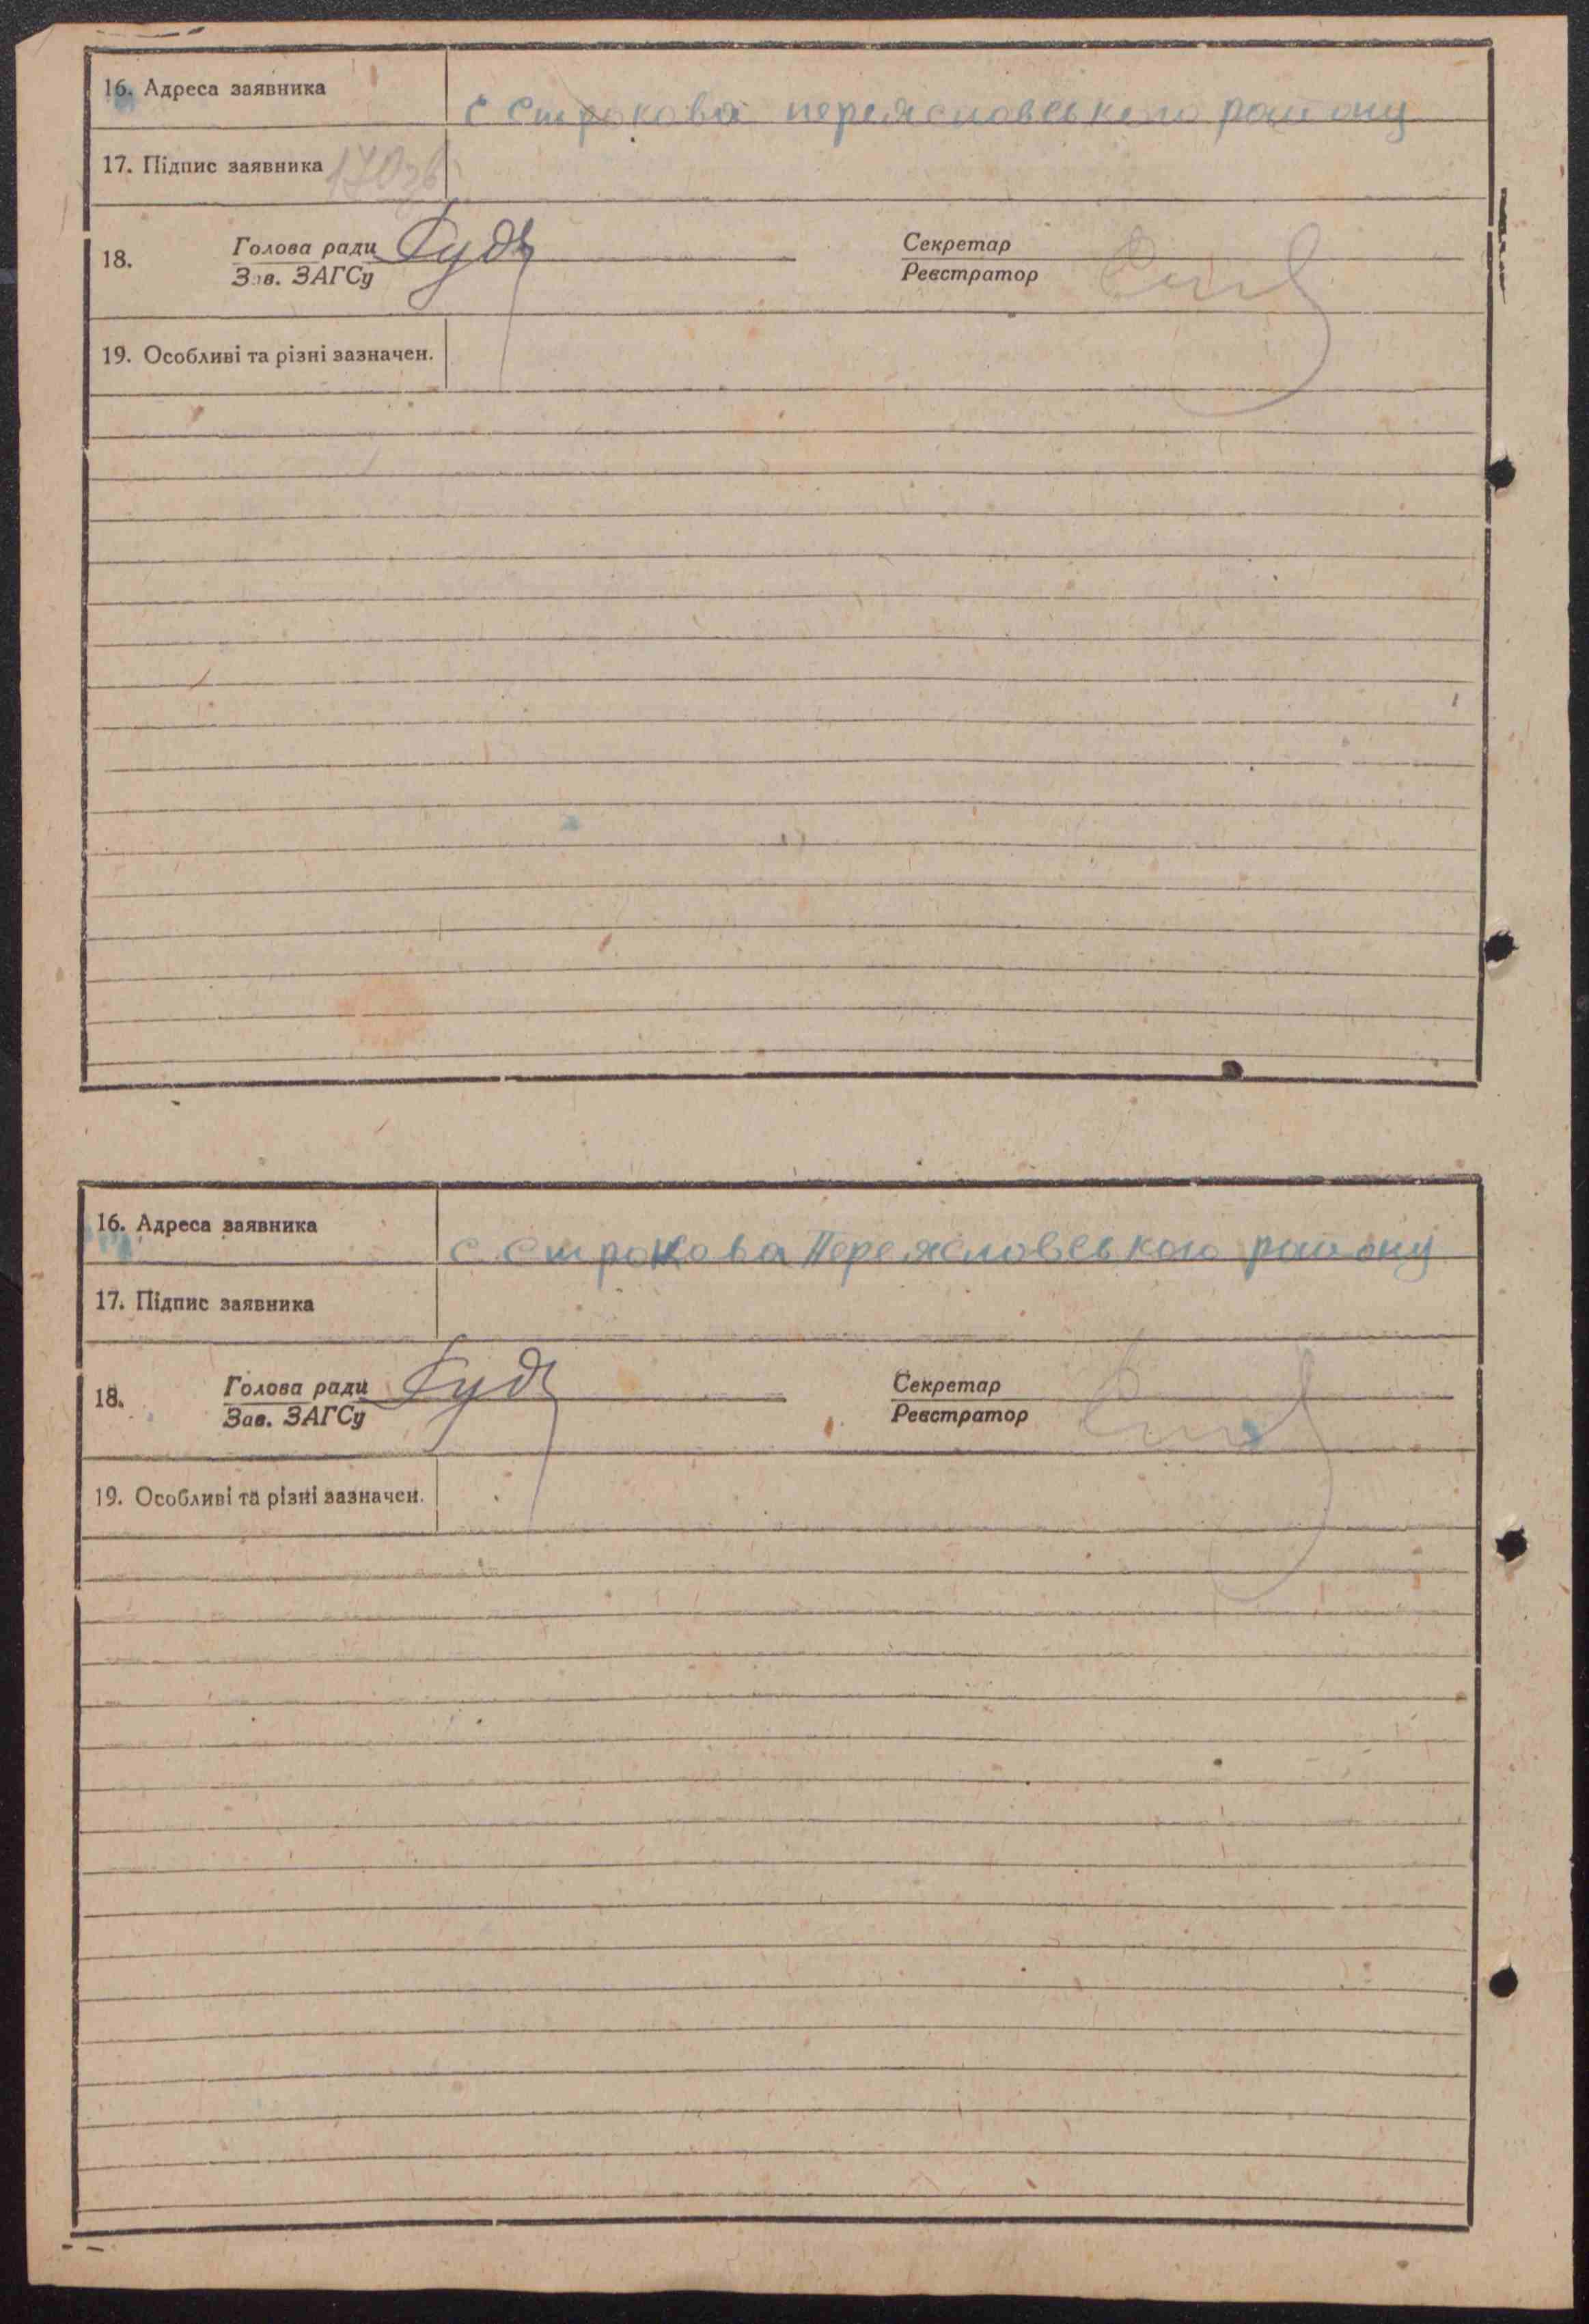 16. Адреса заявника
с Строкова переясловського району
17. Підпис заявника
18.
Голова ради
Зав. ЗАГСу
Секретар
Реєстратор
19. Особливі та різні зазначен.
16. Адреса заявника
с. Строкова Переясловського району
17. Підпис заявника
18.
Голова ради
Зав. ЗАГСу
Секретар
Реєстратор
19. Особливі та різні зазначен.